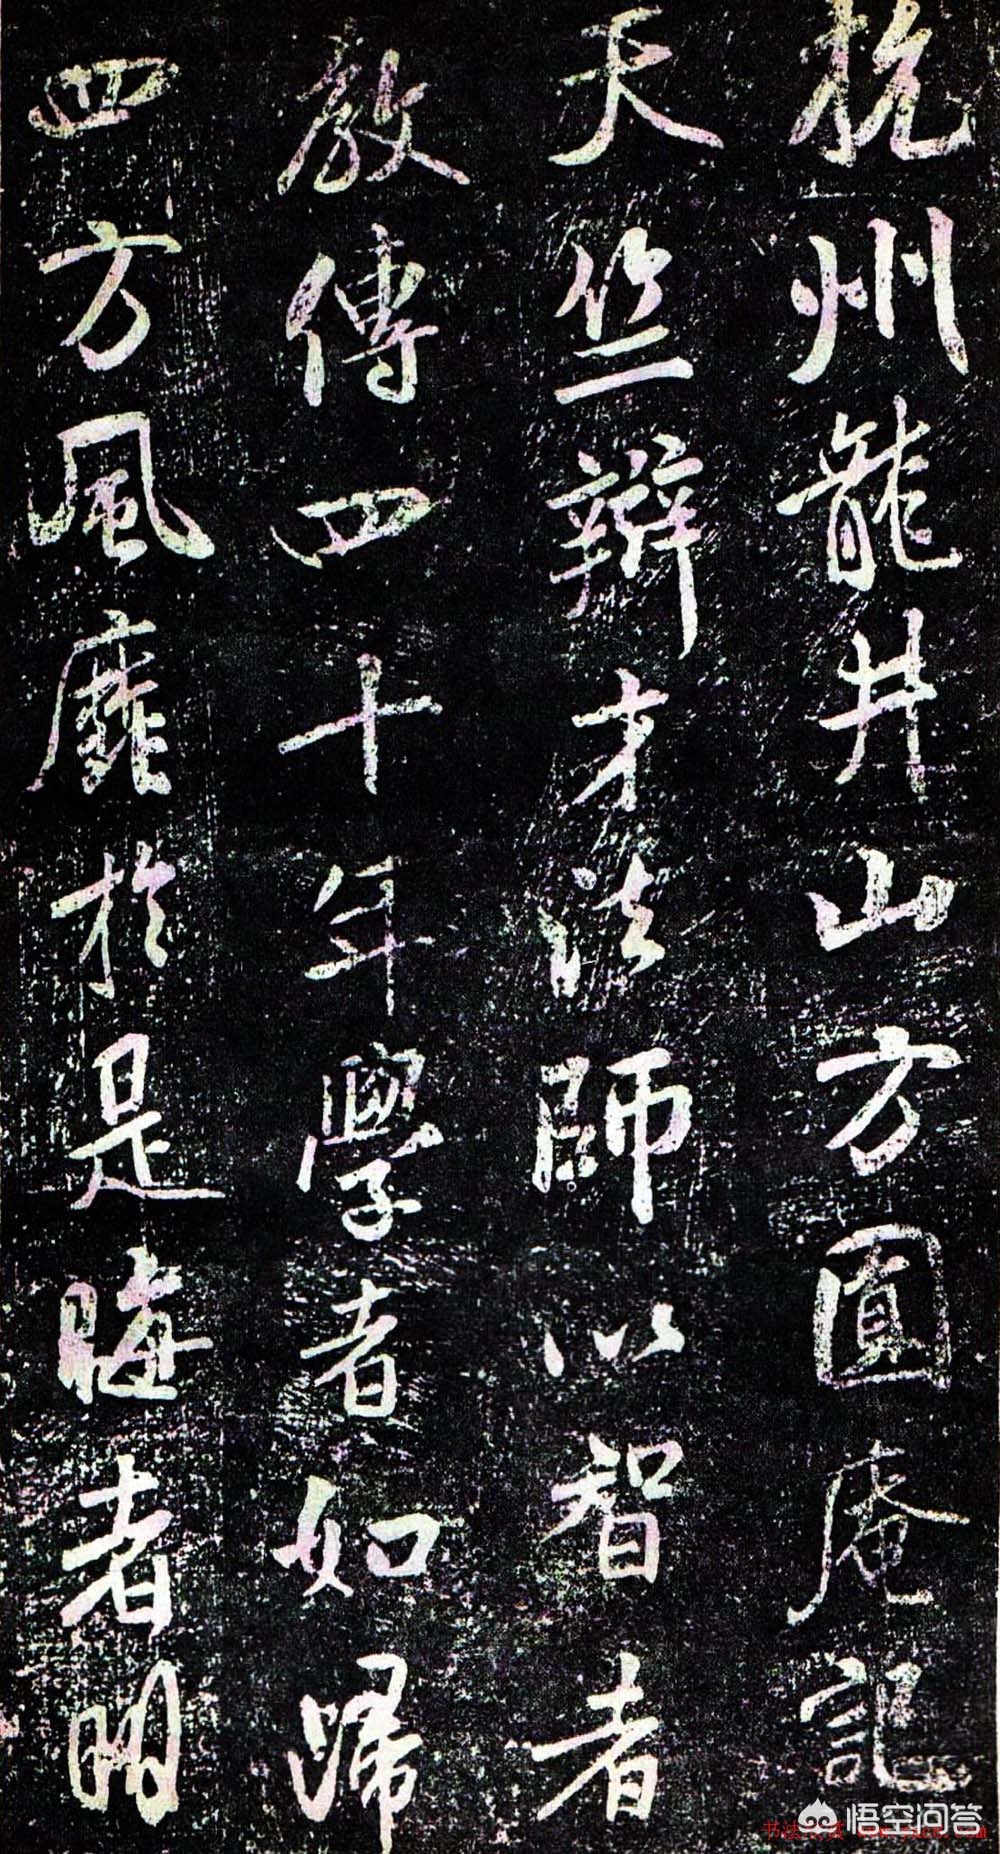 杭州龍井山方圓庵記
天竺辯才法師以智者
教傳四十年學者如歸
四方風靡於是晦者明
悟空问答